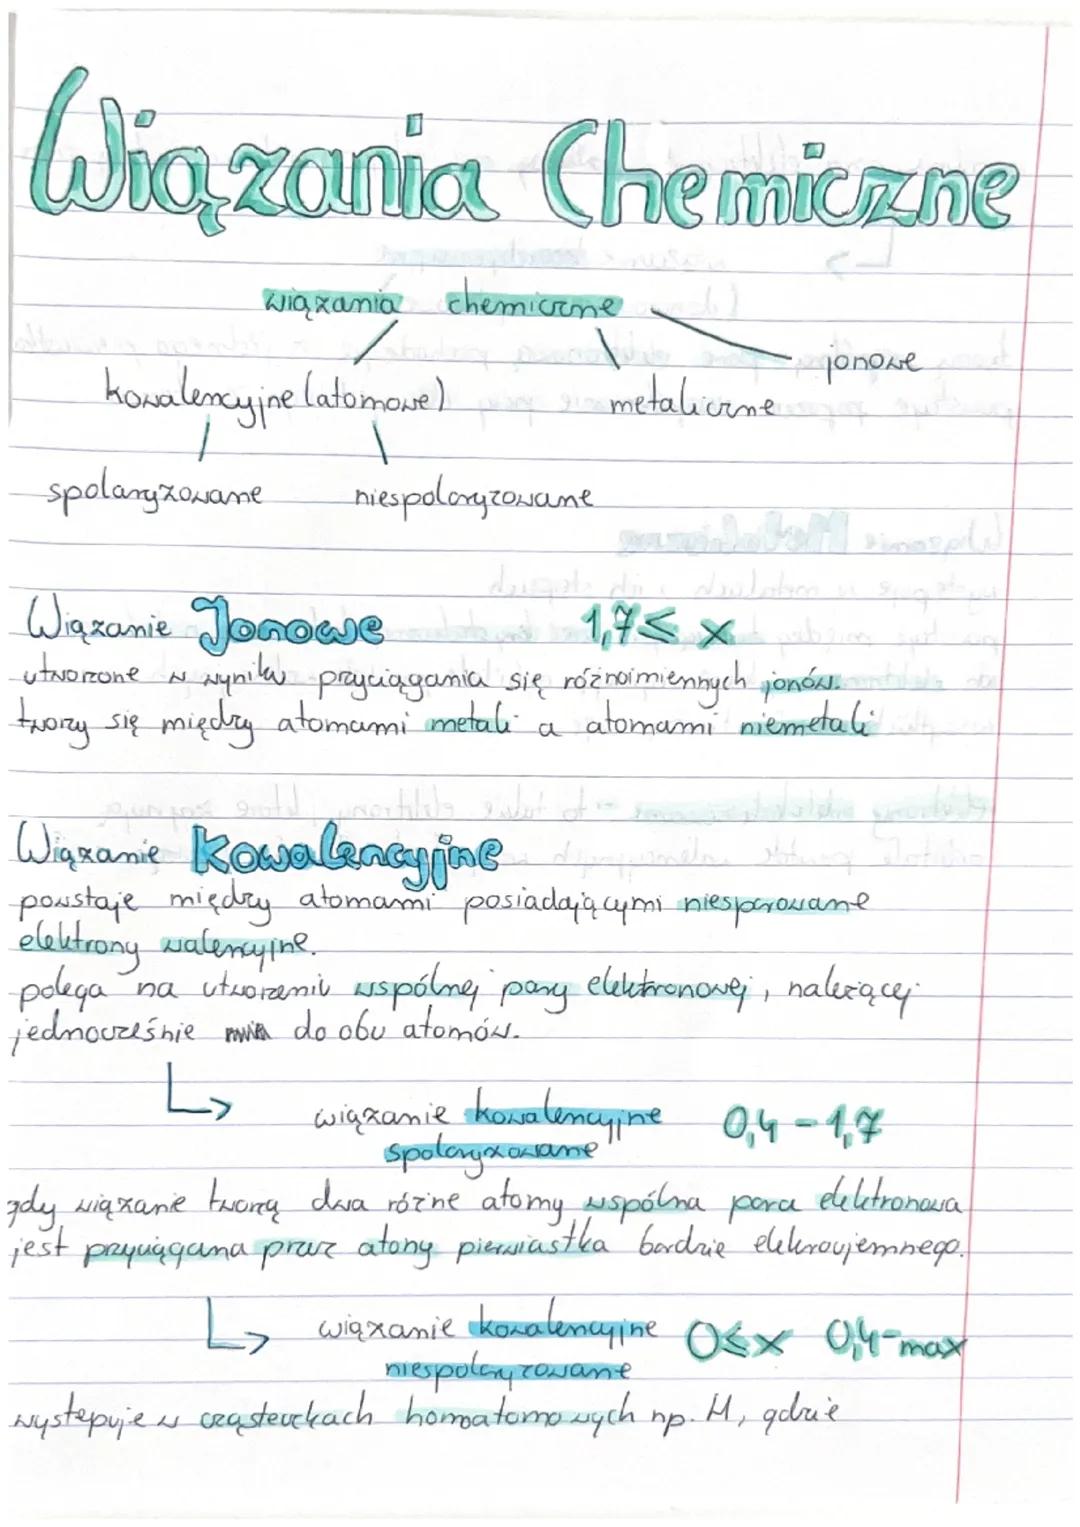 Wiązania Chemiczne
wiązania chemiczne
jonowe
kowalencyjne (atomowe)
metaliczne
spolaryzowane niespolaryzowane
Wiązanie Jonowe 1,7 ≤ x
utworzone w wyniku przyciągania się różnoimiennych jonów.
tworzy się między atomami metali a atomami niemetali
Wiązanie Kowalencyjne
powstaje między atomami posiadającymi niesparowane
elektrony walencyjne.
polega na utworzeniu wspólnej pary elektronowej, należącej
jednocześnie do obu atomów.
wiązanie kowalencyjne 0,4 - 1,7
spolaryzowane
gdy wiązanie tworzą dwa różne atomy wspólna para elektronowa
jest przyciągana przez atomy pierwiastka bardzie elekroujemnego.
wiązanie kowalencyjne 0 ≤ x 0,4-max
niespolaryzowane
występuje w cząsteczkach homoatomowych np. H, gdzie